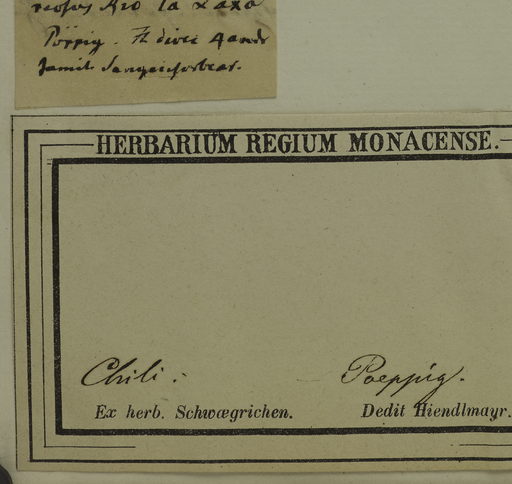 Rio la Laxa
Pöppig.
famil.
HERBARIUM REGIUM MONACENSE.
Chili: Poeppig.
Ex herb. Schwægrichen. Dedit Hiendlmayr.